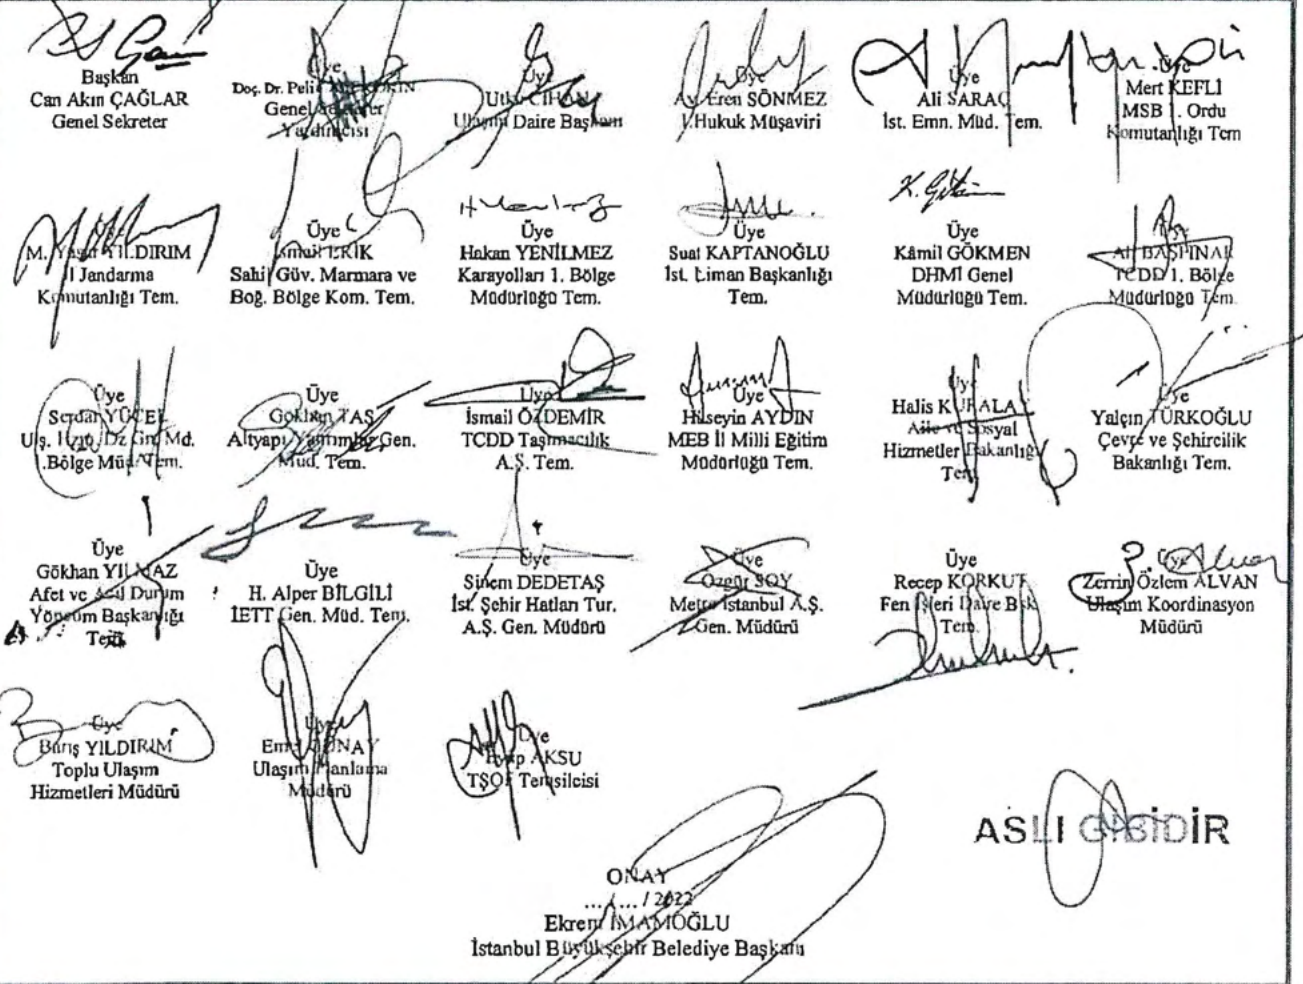 Başkan
Can Akın ÇAĞLAR
Genel Sekreter
Üye
Doç. Dr.
Genel
Yardımcısı
Üye
Utku CİHAN
Ulaşım Daire Başkanı
Üye
Av. Eren SÖNMEZ
I.Hukuk Müşaviri
Üye
Ali SARAÇ
İst. Emn. Müd. Tem.
Üye
Mert KEFLİ
MSB 1. Ordu
Komutanlığı Tem
M. YILDIRIM
İl Jandarma
Komutanlığı Tem.
Üye
İsmail ERİK
Sahil Güv. Marmara ve
Boğ. Bölge Kom. Tem.
Üye
Hakan YENİLMEZ
Karayolları 1. Bölge
Müdürlüğü Tem.
Üye
Suat KAPTANOĞLU
İst. Liman Başkanlığı
Tem.
K. Gökmen
Üye
Kâmil GÖKMEN
DHMİ Genel
Müdürlüğü Tem.
Üye
Ali BAŞPINAR
TCDD 1. Bölge
Müdürlüğü Tem.
Üye
Serdar YÜCEL
Md.
1.Bölge Müd. Tem.
Üye
Gökhan TAŞ
Altyapı Yatırımlar Gen.
Müd. Tem.
Üye
İsmail ÖZDEMİR
TCDD Taşımacılık
A.Ş. Tem.
Üye
Hüseyin AYDIN
MEB İl Milli Eğitim
Müdürlüğü Tem.
Üye
Halis
Aile ve Sosyal
Hizmetler Bakanlığı
Tem.
Üye
Yalçın TÜRKOĞLU
Çevre ve Şehircilik
Bakanlığı Tem.
Üye
Gökhan YILMAZ
Afet ve Acil Durum
Yönetim Başkanlığı
Tem.
Üye
H. Alper BİLGİLİ
İETT Gen. Müd. Tem.
Üye
Sinem DEDETAŞ
İst. Şehir Hatları Tur.
A.Ş. Gen. Müdürü
Üye
Özgür SOY
Metro İstanbul A.Ş.
Gen. Müdürü
Üye
Recep KORKUT
Fen İşleri Daire Bşk.
Tem.
Üye
Zerrin Özlem ALVAN
Ulaşım Koordinasyon
Müdürü
Üye
Barış YILDIRIM
Toplu Ulaşım
Hizmetleri Müdürü
Üye
GÜNAY
Ulaşım Planlama
Müdürü
Üye
Eyüp AKSU
TŞOF Temsilcisi
ASLI GİBİDİR
ONAY
.../... / 2022
Ekrem İMAMOĞLU
İstanbul Büyükşehir Belediye Başkanı